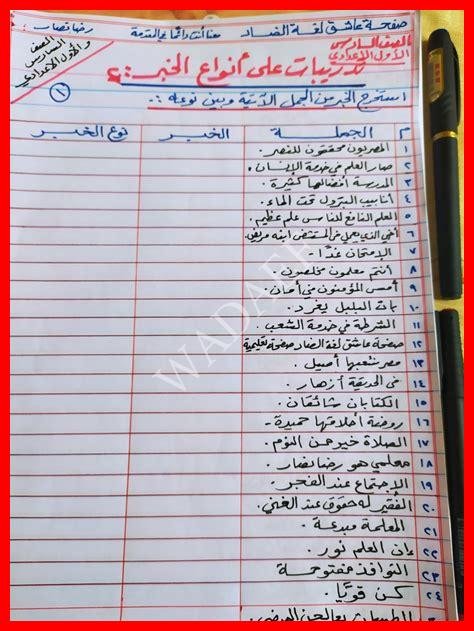 صفحة عاشق لغة الضاد معنا أنت دائمًا في المقدمة رضا نصار
الصف السادس
الأول الإعدادي
الصف
السادس
والأول الإعدادي
تدريبات على أنواع الخبر :- ع
١
استخرج الخبر من الجمل الآتية وبين نوعه :-
م الجملة الخبر نوع الخبر
١ المصريون محققون للنصر .
٢ صار العلم في خدمة الإنسان .
٣ المدرسة أفضالها كثيرة .
٤ أنابيب البترول تحت الماء .
٥ العلم النافع للناس علم عظيم .
٦ أخي الذي يعمل في المستشفى ابنه مريض .
٧ الإمتحان غدًا -
٨ أنتم معلمون مخلصون .
٩ أمسى المؤمنون في أمان .
١٠ بات البلبل يغرد .
١١ الشرطة في خدمة الشعب .
١٢ صفحة عاشق لغة الضاد صفحة تعليمية
١٣ مصر شعبها أصيل .
١٤ في الحديقة أزهار .
١٥ الكتابان شائقان .
١٦ روضة أخلاقها حميدة -
١٧ الصلاة خير من النوم .
١٨ معلمي هو رضا نصار .
١٩ الإجتماع عند الفجر .
٢٠ الفقير له حقوق عند الغني .
٢١ المعلمة مبدعة .
٢٢ إن العلم نور .
٢٣ النوافذ مفتوحة
٢٤ كن قويًا .
الطبيبان يعالجان المرضى .
WADAEF